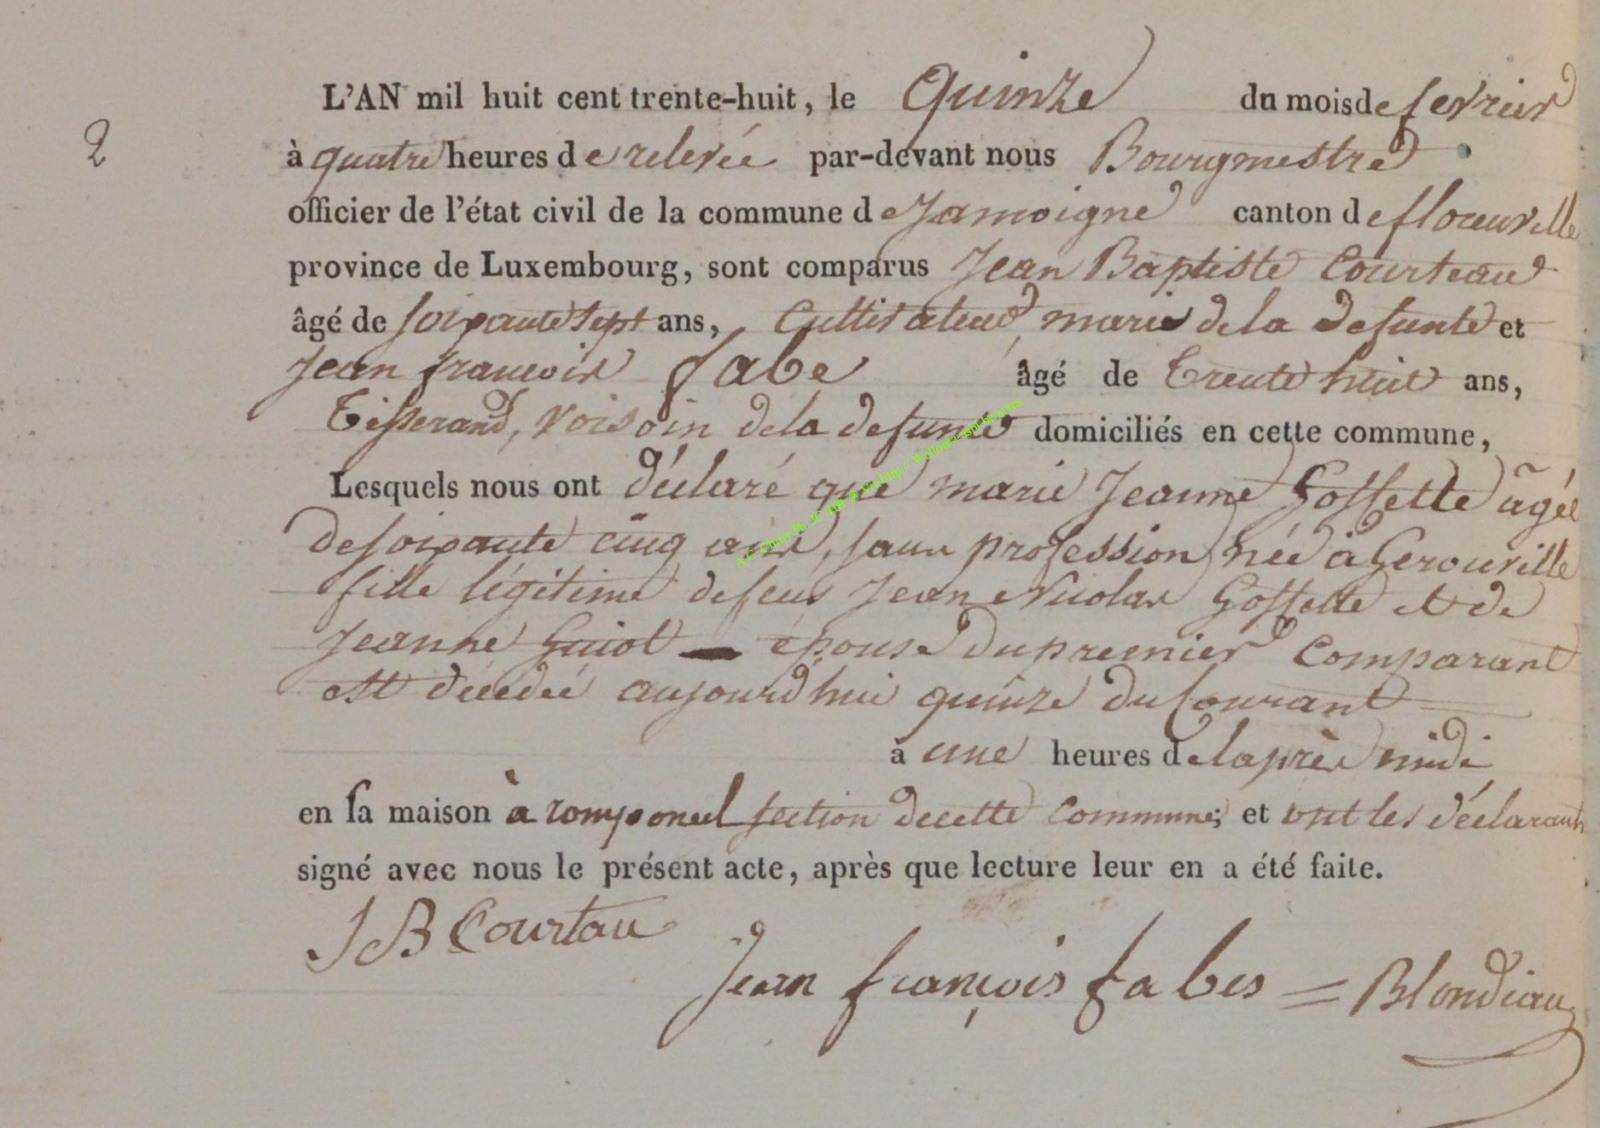 L'AN mil huit cent trente-huit, le quinze du mois de fevrier
2
à quatre heures de relevée par-devant nous Bourgmestre
officier de l'état civil de la commune de Jamoigne canton de florenville
province de Luxembourg, sont comparus Jean Baptiste Courteau
âgé de soixante sept ans, Cultivateur, mari de la defunte et
Jean françois fabe âgé de trente huit ans,
tisserand, voisin de la defunte domiciliés en cette commune,
Lesquels nous ont déclaré que marie Jeanne Goffette âgée
de soixante cinq ans, sans profession, née à Gerouville
fille légitime de feus Jean Nicolas Goffette et de
Jeanne Guiot épouse du premier comparant
est décédée aujourd'hui quinze du courant
à une heures de laprès midi
en sa maison à romponcel section de cette commune; et ont les déclarants
signé avec nous le présent acte, après que lecture leur en a été faite.
J B Courtau
Jean françois fabes = Blondiau